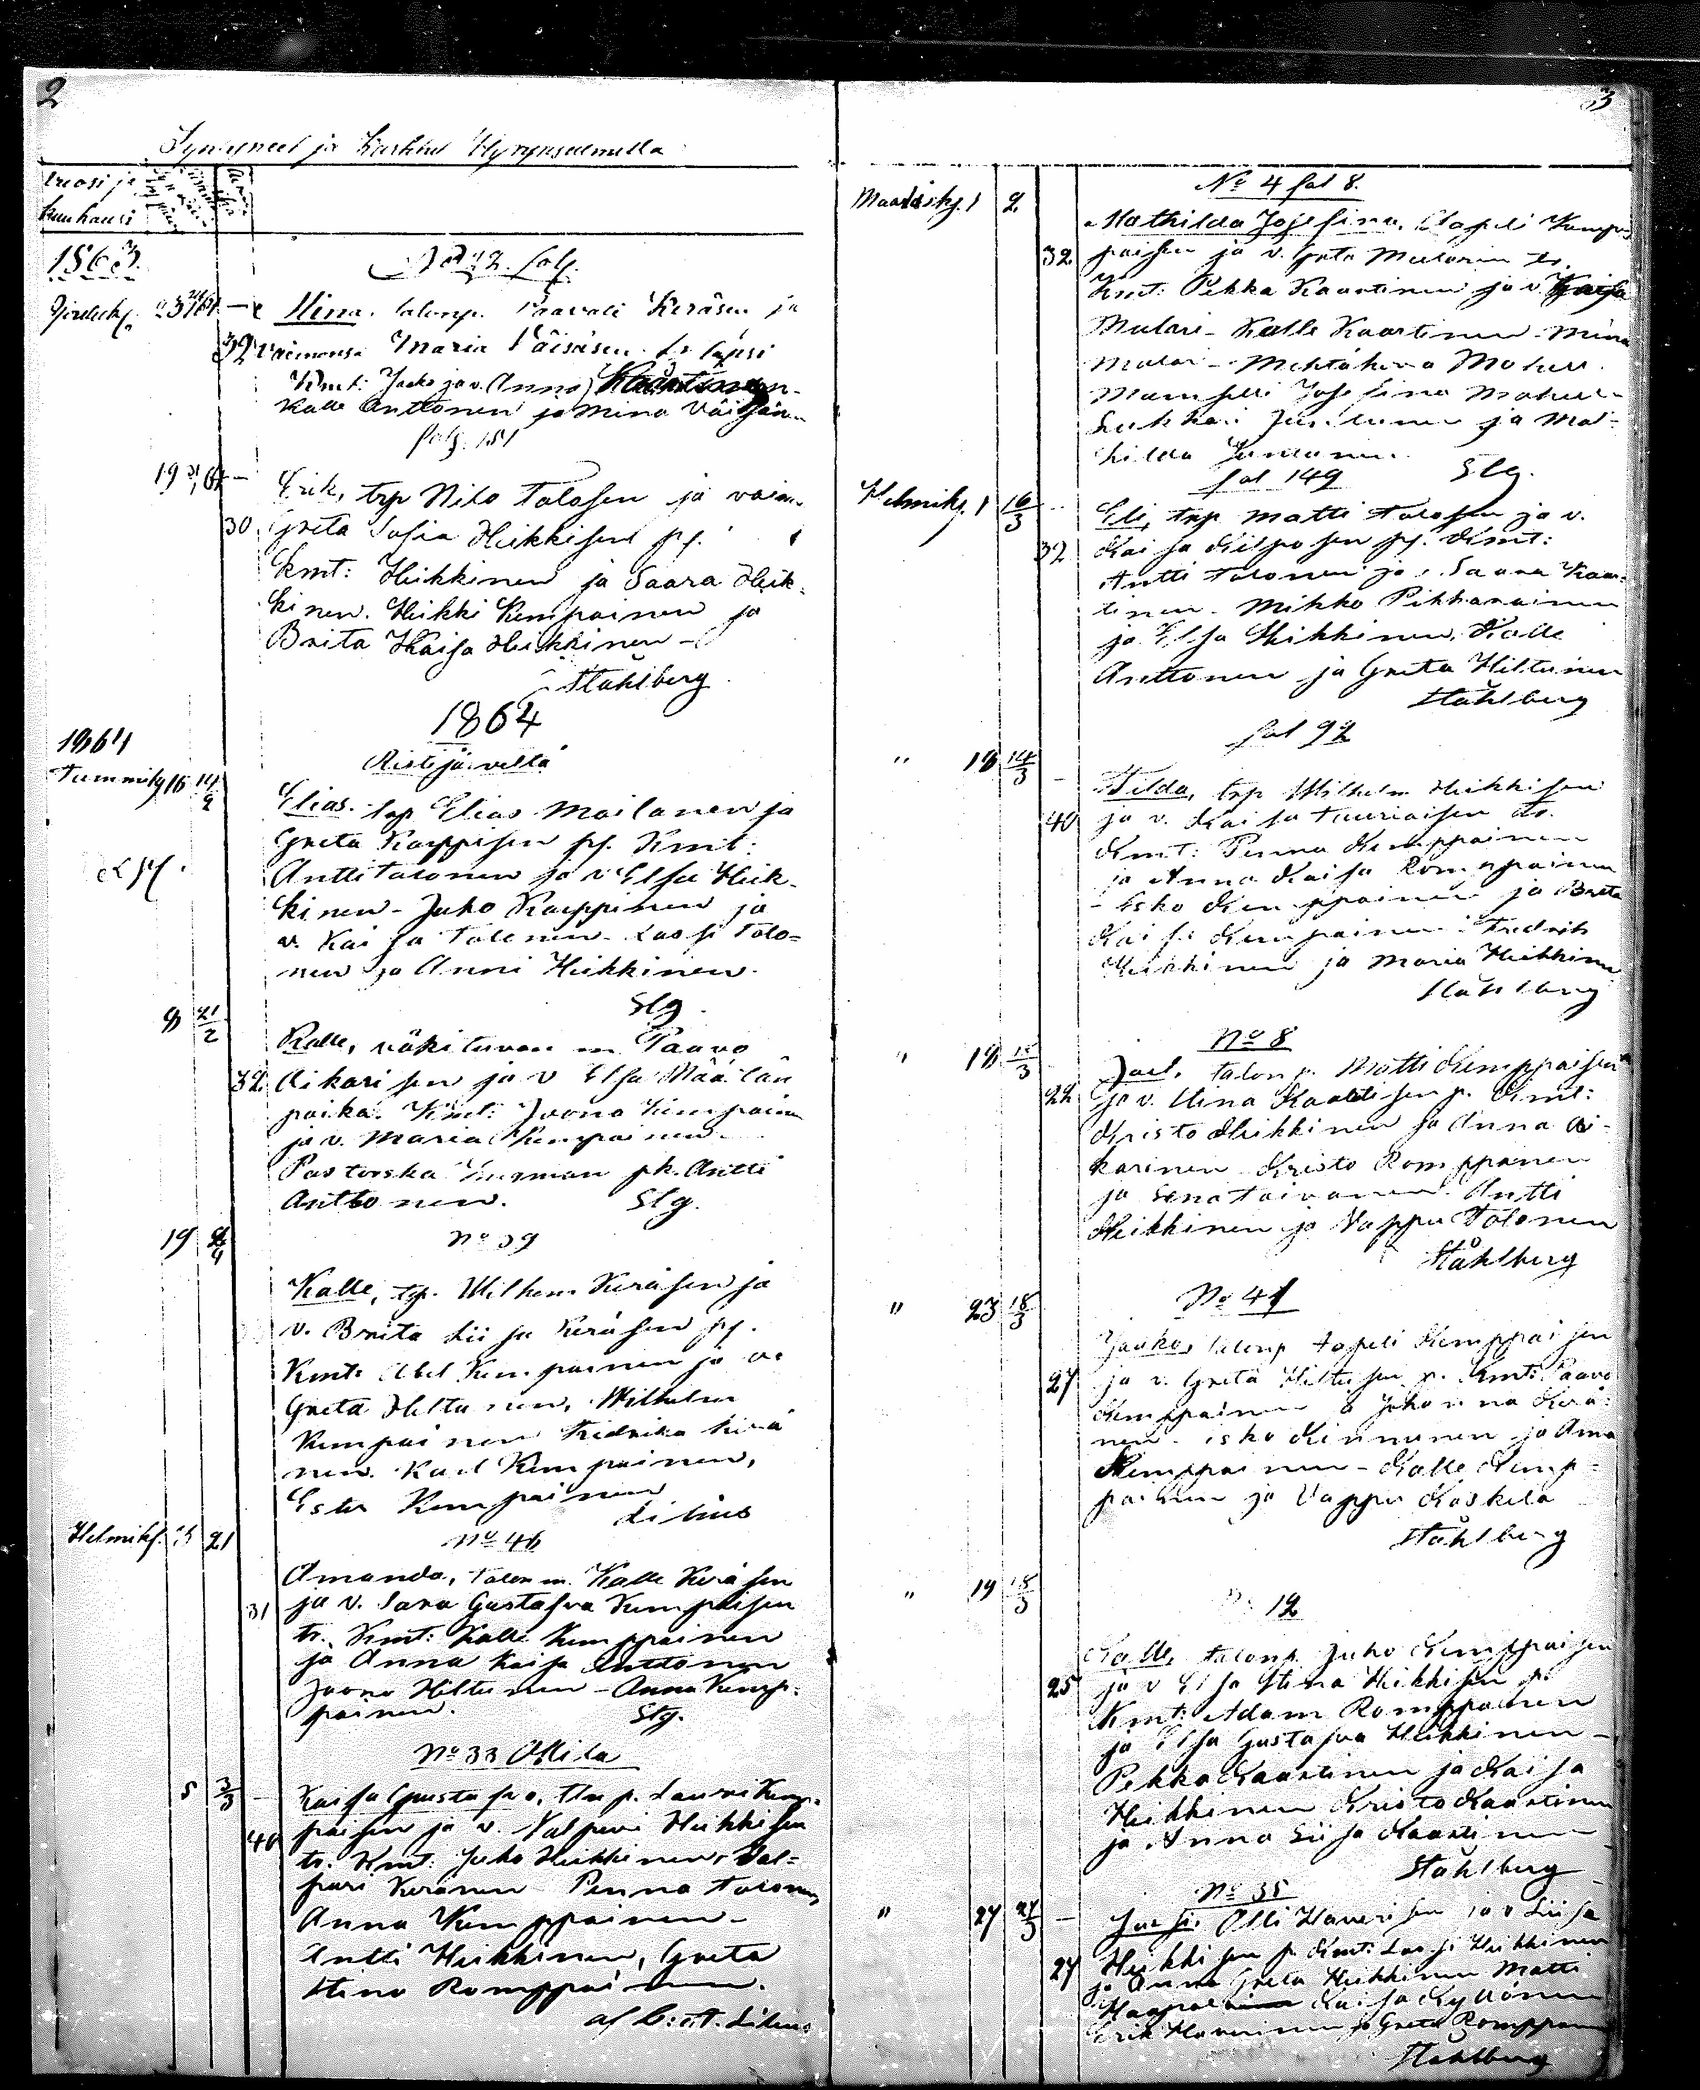 2
Syntyneet ja Kastetut Hyrynsalmella
vuosi ja
kuukausi
1863
Joulukk. 23 — Stina. talonp. Paavali Keräsen ja
32 vaimonsa Maria Väisäsen tr lapsi
Kmt: Jaako ja v. Anna
Kalle Anttonen ja Mina Väisän
falg. 151
19 — Erik, trp Nilo Talosen ja vaim.
30 Greta Sofia Heikkisen pj.
kmt: Heikkinen ja Saara Heik-
kinen. Heikki Kempainen ja
Brita Kaisa Heikkinen –
Ståhlberg
1864
1864 Ristijärveltä
Tammiky 16 14/2
Elias. trp Elias Moilanen ja
Greta Karppisen pj. Kmt:
Antti Talonen ja v Elsa Heik-
kinen – Juho Karppinen ja
v. Kaisa Talonen – Lassi Talo-
nen ja Anni Heikkinen.
Slg
8 21/2
Kalle, väkituvan m. Paavo
32 Aikarisen ja v Elsa Määtän
poika. Kmt: Joona Kempainen
ja v. Maria Kempainen.
Pastorska pk. Antti
Anttonen. Slg.
19 No 39
Kalle, trp. Wilhem Keräsen ja
v. Brita Liisa Keräsen pj.
Kmt: Abel Kempainen ja v.
Greta Heltunen, Wilhelm
Kempainen Fredrika Kerä
nen. Karl Kempainen,
Ester Kempainen
Lilius
Helmikk. 21 No 46
Amanda, talon m. Kalle Keräsen
31 ja v. Sara Gustafva Kempaisen
tr. Kmt: Kalle Kemppainen
ja Anna Kaisa Anttonen
Joono Heltunen – Anna Kemp-
painen. Slg.
No 33 Ollila
5 3/3 — Kaisa Gustafva, tln p. Lauri Kem-
paisen ja v. Valpuri Heikkisen
40 tr. Kmt: Juho Heikkinen, Val-
puri Keränen Penna Talonen
Anna Kemppainen –
Antti Heikkinen, Greta
Stina Romppainen.
af C. A. Lilius
3
No 4 fal 8.
Maaliskj. 1 2
Mathilda Josefina, Tapeli Kemp
32 paisen ja v. Greta Mularin tr.
Kmt: Pekka Kaartinen ja v. Kaisa
Mulari – Kalle Kaartinen – Mina
Mulari –
Mamselli Josefina
ja Mat-
hilda
fal 149 Slg.
Helmikj. 1 16/3
Eli, trp Matti Talosen ja v.
32 Kaisa Kilposen pj. Kmt:
Antti Talonen ja Saara Kaar-
tinen. Mikko Pikkarainen
ja Elsa Heikkinen, Kalle
Anttonen ja Greta Hiltunen
Ståhlberg
fal 92
" 18 14/3 — Tilda, trp Wilhelm Heikkisen
40 ja v. Kaisa Tauriaisen tr.
Kmt: Penna Kemppainen
ja Anna Kaisa Romppainen
– Esko Kemppainen ja Brita
Kaisa Kempainen – Fredrik
Heikkinen ja Maria Heikkinen
Ståhlberg
No 8
" 18 15/3
Joel, talonp. Matti Kemppaisen
22 ja v. Stina Kaartisen p. Kmt:
Kristo Heikkinen ja Anna Ai-
karinen Kristo Romppanen
ja Lena Toivanen. Antti
Heikkinen ja Vappu Talonen
Ståhlberg
No 41
" 23 18/3
Jaako, talonp Tapeli Kemppaisen
27 ja v. Greta Hiltusen p. Kmt: Paavo
Kemppainen Johanna Kerä-
nen. Esko Kinnunen ja Anna
Kemppainen – Kalle Kemp-
painen ja Vappu Koskela
Ståhlberg
" 19 18/3
No 12
Kalle, talonp. Juho Kemppaisen
25 ja v Elsa Stina Heikkisen p.
Kmt: Adam Romppainen
ja Elsa Gustafva Heikkinen –
Pekka Kaartinen ja Kaisa
Heikkinen Kristo Kaartinen
ja Anna Liisa Kaartinen
Ståhlberg
No 35
" 27 27/3 — Olli Haverisen ja v Liisa
27 Heikkisen p. Kmt: Lassi Heikkinen
ja Anna Greta Heikkinen Matti
Kaisa Kyllönen
Erik Haverinen ja Greta Romppanen
Ståhlberg